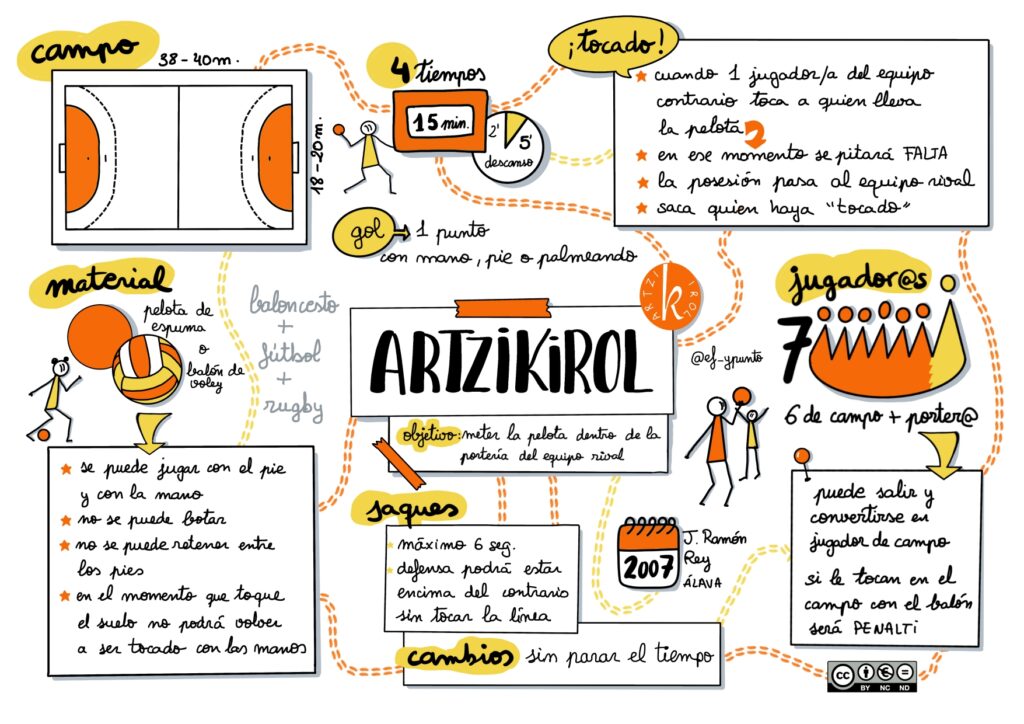 campo
38-40m.
18-20m.
4 tiempos
15 min.
2'
5'
descanso
¡tocado!
cuando 1 jugador/a del equipo
contrario toca a quien lleva
la pelota
en ese momento se pitará FALTA
la posesión pasa al equipo rival
saca quien haya "tocado"
gol → 1 punto
con mano, pie o palmeando
material
pelota de
espuma
o
balón de
voley
baloncesto
+
fútbol
+
rugby
ARTZIKIROL
k
ARTZIKIROL
@ef-ypunto
objetivo: meter la pelota dentro de la
portería del equipo rival
jugador@s
7
6 de campo + porter@
puede salir y
convertirse en
jugador de campo
si le tocan en el
campo con el balón
será PENALTI
se puede jugar con el pie
y con la mano
no se puede botar
no se puede retener entre
los pies
en el momento que toque
el suelo no podrá volver
a ser tocado con las manos
saques
máximo 6 seg.
defensa podrá estar
encima del contrario
sin tocar la línea
2007
J. Ramón
Rey
ÁLAVA
cambios sin parar el tiempo
cc
BY NC ND